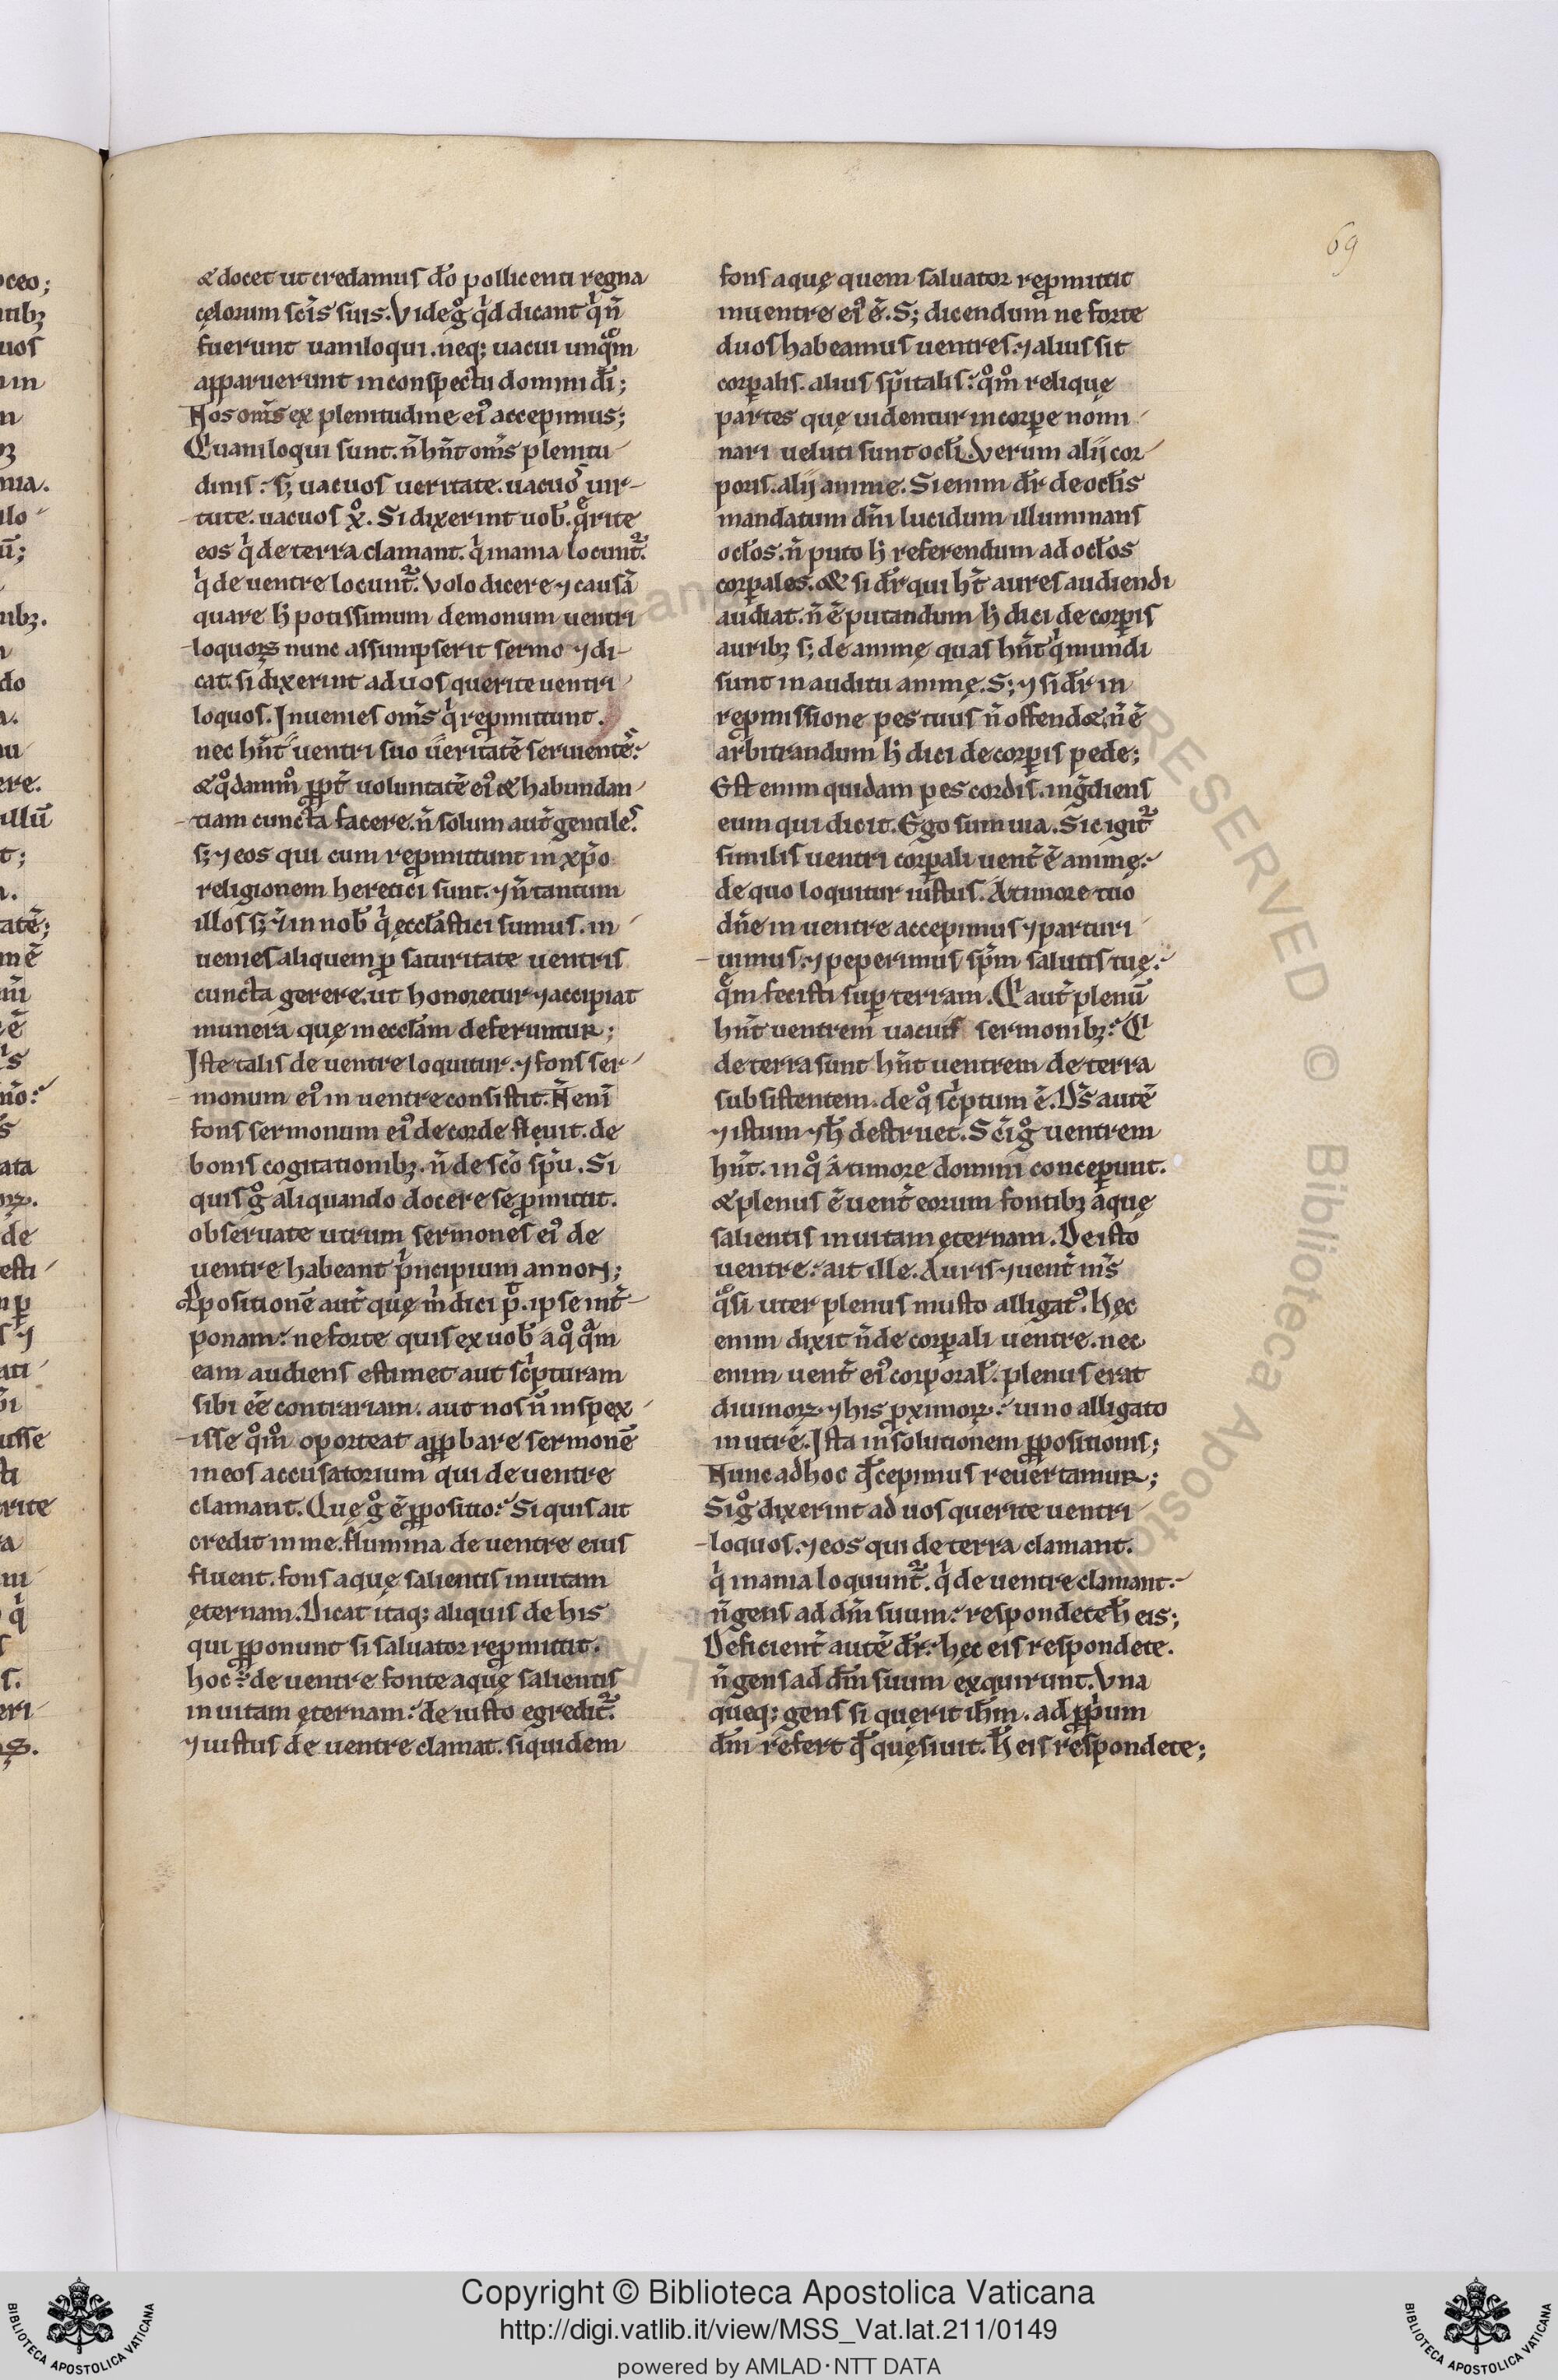 69
& docet ut credamus dō pollicenti regna
cęlorum scīs suis. Vide gͦ qͥd dicant qͥ ñ
fuerunt uaniloqui. neq; uacui unqͣm
apparuerunt in conspectu domini dī;
Nos om̄s ex plenitudine eiꝰ accepimus;
Qͥ uaniloqui sunt. ñ hñt om̄s plenitu-
dinis. s; uacuos ueritate. uacuos uir-
tute. uacuos x̊. Si dixerint uob̄. qͣrite
eos qͥ de terra clamant. qͥ inania locunt᷑.
qͥ de uentre locunt᷑. Volo dicere ⁊ causā
quare h̄ potissimum demonum uentri
loquoꝝ nunc assumpserit sermo ⁊ di-
cat. si dixerint ad uos querite uentri
loquos. Inuenies om̄s qͥ reꝓmittunt.
nec hñt uentri suo ueritatē seruientēs
& qͦdāmͦ ꝓpt̄ uoluntatē eiꝰ & habundan-
tiam cuncta facere. ñ solum aut̄ gentiles.
s; ⁊ eos qui cum reꝓmittunt in xp̄o
religionem heretici sunt. ⁊ ñ tantum
illos s; ⁊ in nob̄ qͥ ęccl̄astici sumus. in
uenies aliquem ꝓ saturitate uentris
cuncta gerere. ut honoretur ⁊ accipiat
munera quę in eccl̄am deferuntur;
Iste talis de uentre loquitur. ⁊ fons ser-
monum eiꝰ in uentre consistit. Ñ enī
fons sermonum eiꝰ de corde fleuit. de
bonis cogitationibꝫ. ñ de scō sp̄u. Si
quis gͦ aliquando docere se ꝓmittit.
obseruate utrum sermones eiꝰ de
uentre habeant pͥncipium an non;
ꝓpositionē aut̄ quę m̄ dici p̄. ipse int̄-
ponam. ne forte quis ex uob̄ a qͦqͣm
eam audiens estimet aut scͥpturam
sibi eē contrariam. aut nos ñ inspex-
isse qͦmͦ oporteat apꝓbare sermonē
in eos accusatorium qui de uentre
clamant. Quę gͦ ē ꝓpositio. Si quis ait
credit in me. flumina de uentre eius
fluent. fons aquę salientis in uitam
ęternam. Dicat itaq; aliquis de his
qui ꝓponunt si saluator reꝓmittit.
hoc. de uentre fonte aquę salientis
in uitam ęternam. de iusto egredit᷑.
⁊ iustus de uentre clamat. siquidem
fons aquę quem saluator reꝓmittit
in uentre eiꝰ ē. S; dicendum ne forte
duos habeamus uentres. ⁊ alius sit
corꝑalis. alius sp̄italis. qͦmͦ relique
partes quę uidentur in corꝑe nomi-
nari ueluti sunt ocl̄i. Verum alij cor-
poris. alij anime. Si enim dr̄ de ocl̄is
mandatum dn̄i lucidum illuminans
ocl̄os. ñ puto h̄ referendum ad ocl̄os
corꝑales. & si dr̄ qui ht̄ aures audiendi
audiat. ñ ē putandum h̄ dici de corꝑis
auribꝫ s; de animę quas hñt qͥ mundi
sunt in auditu animę. S; ⁊ si dr̄ in
reꝓmissione pes tuus ñ offend&. ñ ē
arbitrandum h̄ dici de corꝑis pede;
Est enim quidam pes cordis. ingͣdiens
eum qui dicit. Ego sum uia. Sic igit᷑
similis uentri corꝑali uent̄ ē animę.
de quo loquitur iustus. A timore tuo
dn̄e in uentre accepimus ⁊ parturi-
uimus. ⁊ peperimus sp̄m salutis tuę.
qͣm fecisti suꝑ terram. Qͥ aut̄ plenū
hñt uentrem uacuis sermonibꝫ. Qͥ
de terra sunt hñt uentrem de terra
subsistentem. de qͦ scͥptum ē. Ds̄ autē
⁊ istum ⁊ h̄ destruet. Scī gͦ uentrem
hñt. in qͦ a timore domini conceperunt.
& plenus ē uent̄ eorum fontibꝫ aquę
salientis in uitam ęternam. De isto
uentre. ait ille. Auris ⁊ uent̄ m̄s
qͣsi uter plenus musto alligatꝰ. Hęc
enim dixit ñ de corꝑali uentre. nec
enim uent̄ eiꝰ corporal̄. plenus erat
diuinoꝝ. ⁊ his ꝓximoꝝ. uino alligato
in utrē. Ista in solutionem ꝓpositionis;
Nunc ad hoc qd̄ cepimus reuertamur;
Si gͦ dixerint ad uos querite uentri-
loquos. ⁊ eos qui de terra clamant.
qͥ inania loquunt᷑. qͥ de uentre clamant.
ñ gens ad dm̄ suum. respondete h̄ eis;
Deficient̄ autē dr̄. hęc eis respondete.
ñ gens ad dm̄ suum exquirunt. Vna
queq; gens si querit ih̄m. ad ꝓpͥum
dm̄ refert qd̄ quęsiuit. h̄ eis respondete;
Copyright © Biblioteca Apostolica Vaticana
http://digi.vatlib.it/view/MSS_Vat.lat.211/0149
powered by AMLAD·NTT DATA
BIBLIOTECA APOSTOLICA VATICANA
BIBLIOTECA APOSTOLICA VATICANA